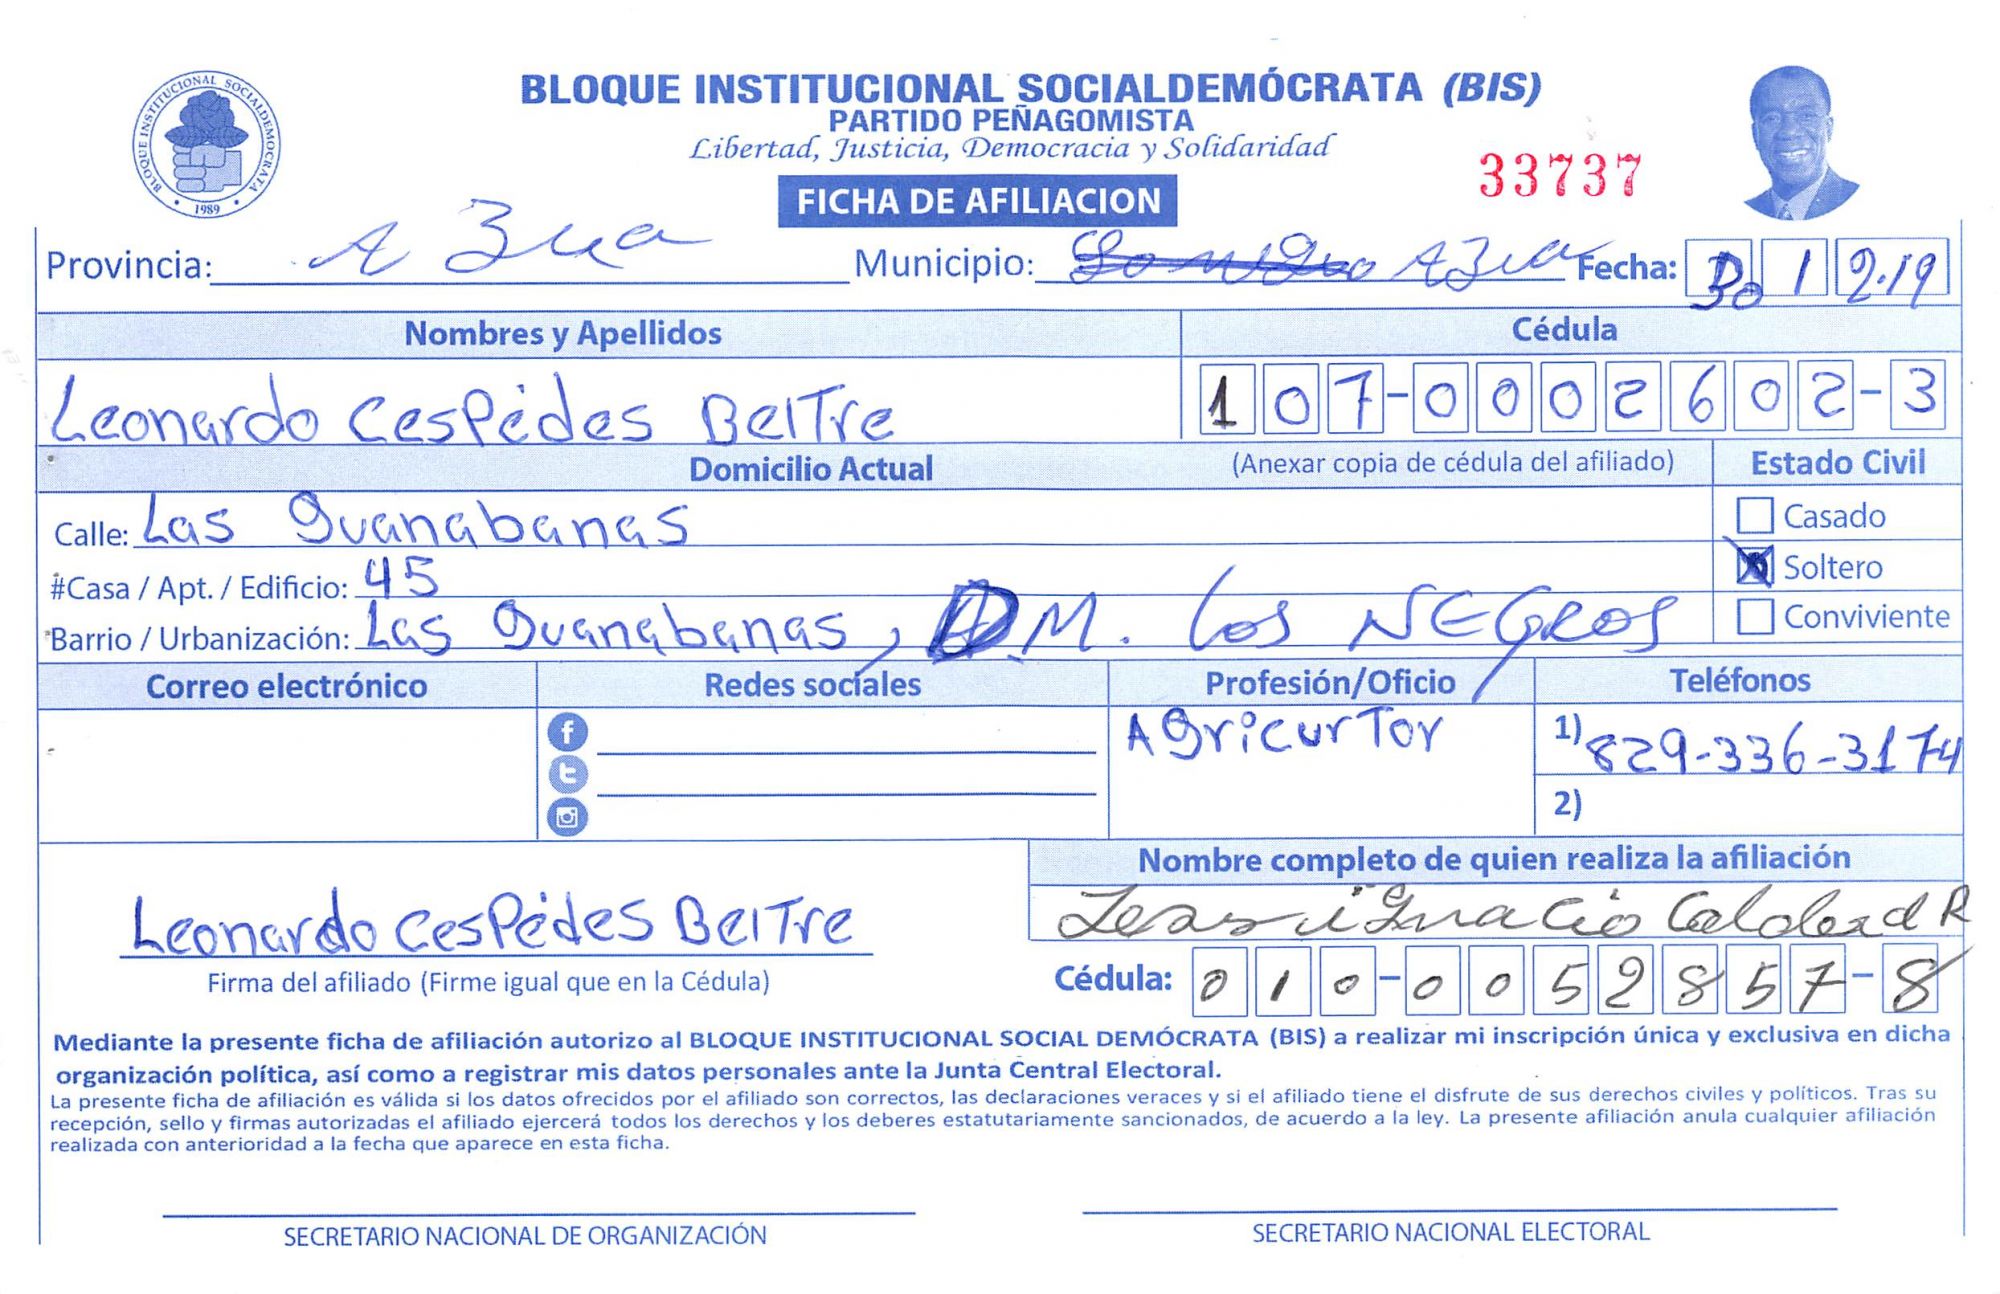 BLOQUE INSTITUCIONAL SOCIALDEMÓCRATA (BIS)
PARTIDO PEÑAGOMISTA
Libertad, Justicia, Democracia y Solidaridad
BLOQUE INSTITUCIONAL SOCIALDEMOCRATA
1989
33737
FICHA DE AFILIACION
Provincia: AZua Municipio: AZua Fecha: 30 1 2.19
Nombres y Apellidos Cédula
Leonardo CesPédes BelTre 107-0002602-3
Domicilio Actual (Anexar copia de cédula del afiliado) Estado Civil
Calle: Las guanabanas Casado
#Casa / Apt. / Edificio: 45 Soltero
Barrio / Urbanización: Las guanabanas, D.M. Los NEGROS Conviviente
Correo electrónico Redes sociales Profesión/Oficio Teléfonos
AgricurTor 1) 829-336-3174
2)
Nombre completo de quien realiza la afiliación
Leonardo CesPédes BelTre ignacio R
Firma del afiliado (Firme igual que en la Cédula) Cédula: 010-0052857-8
Mediante la presente ficha de afiliación autorizo al BLOQUE INSTITUCIONAL SOCIAL DEMÓCRATA (BIS) a realizar mi inscripción única y exclusiva en dicha
organización política, así como a registrar mis datos personales ante la Junta Central Electoral.
La presente ficha de afiliación es válida si los datos ofrecidos por el afiliado son correctos, las declaraciones veraces y si el afiliado tiene el disfrute de sus derechos civiles y políticos. Tras su
recepción, sello y firmas autorizadas el afiliado ejercerá todos los derechos y los deberes estatutariamente sancionados, de acuerdo a la ley. La presente afiliación anula cualquier afiliación
realizada con anterioridad a la fecha que aparece en esta ficha.
SECRETARIO NACIONAL DE ORGANIZACIÓN SECRETARIO NACIONAL ELECTORAL